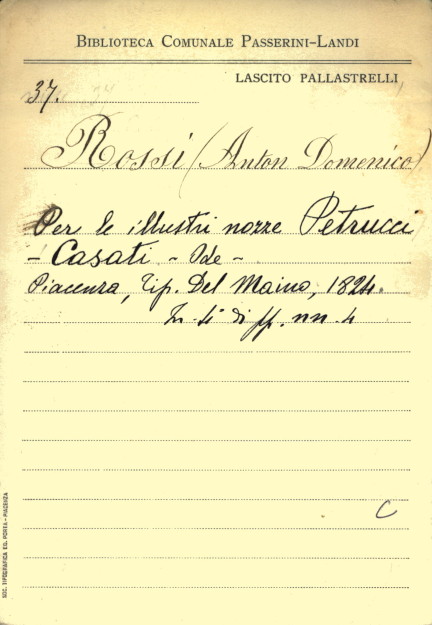 BIBLIOTECA COMUNALE PASSERINI-LANDI
LASCITO PALLASTRELLI
37.
Rossi (Anton Domenico)
Per le illustri nozze Petrucci
- Casati - Ode -
Piacenza, Tip. Del Maino, 1824.
In 4° di ff. nn. 4
C
SOC. TIPOGRAFICA ED. PORTA - PIACENZA